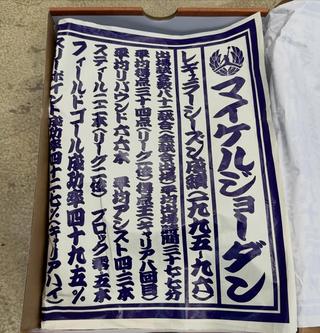 マイケルジョーダン
レギュラーシーズン成績(一九九五-九六)
出場試合数八十二試合(全試合出場)平均出場時間三十七・七分
平均得点三十・四点(リーグ一位)得点王(キャリア八回目)
平均リバウンド六・六本 平均アシスト四・三本
スティール二・二本(リーグ三位) ブロック零・五本
フィールドゴール成功率四十九・五%
スリーポイント成功率四十二・七%(キャリアハイ